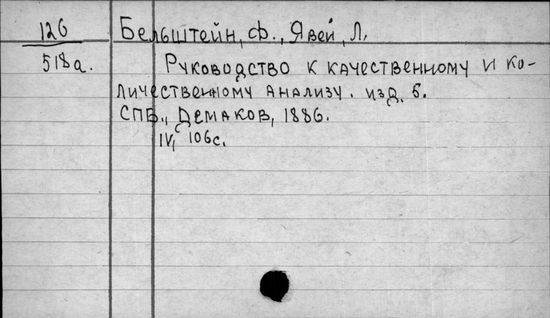 126 Бельштейн, Ф., Явей, Л.
518а. Руководство к качественному и ко-
личественному анализу. изд. 5.
СПБ., Демаков, 1886.
IV, 106с.